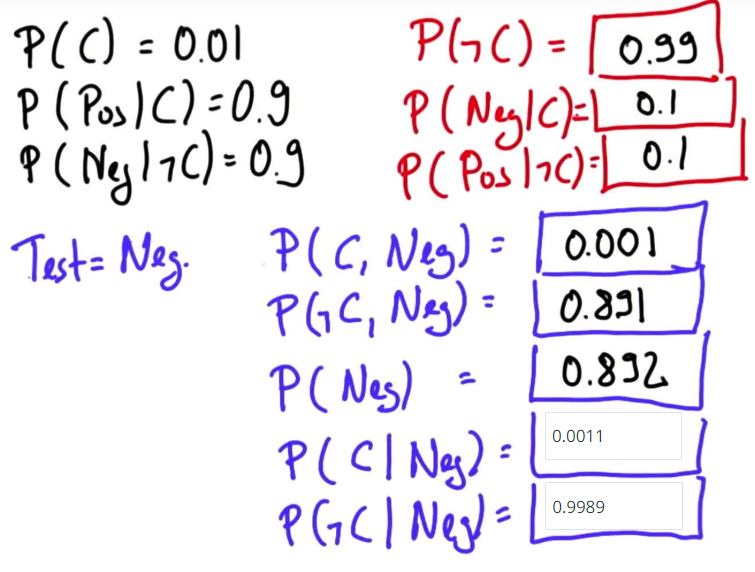 P(C) = 0.01
P(¬C) = 0.99
P(Pos|C) = 0.9
P(Neg|C) = 0.1
P(Neg|¬C) = 0.9
P(Pos|¬C) = 0.1
Test = Neg.
P(C, Neg) = 0.001
P(¬C, Neg) = 0.891
P(Neg) = 0.892
P(C|Neg) = 0.0011
P(¬C|Neg) = 0.9989